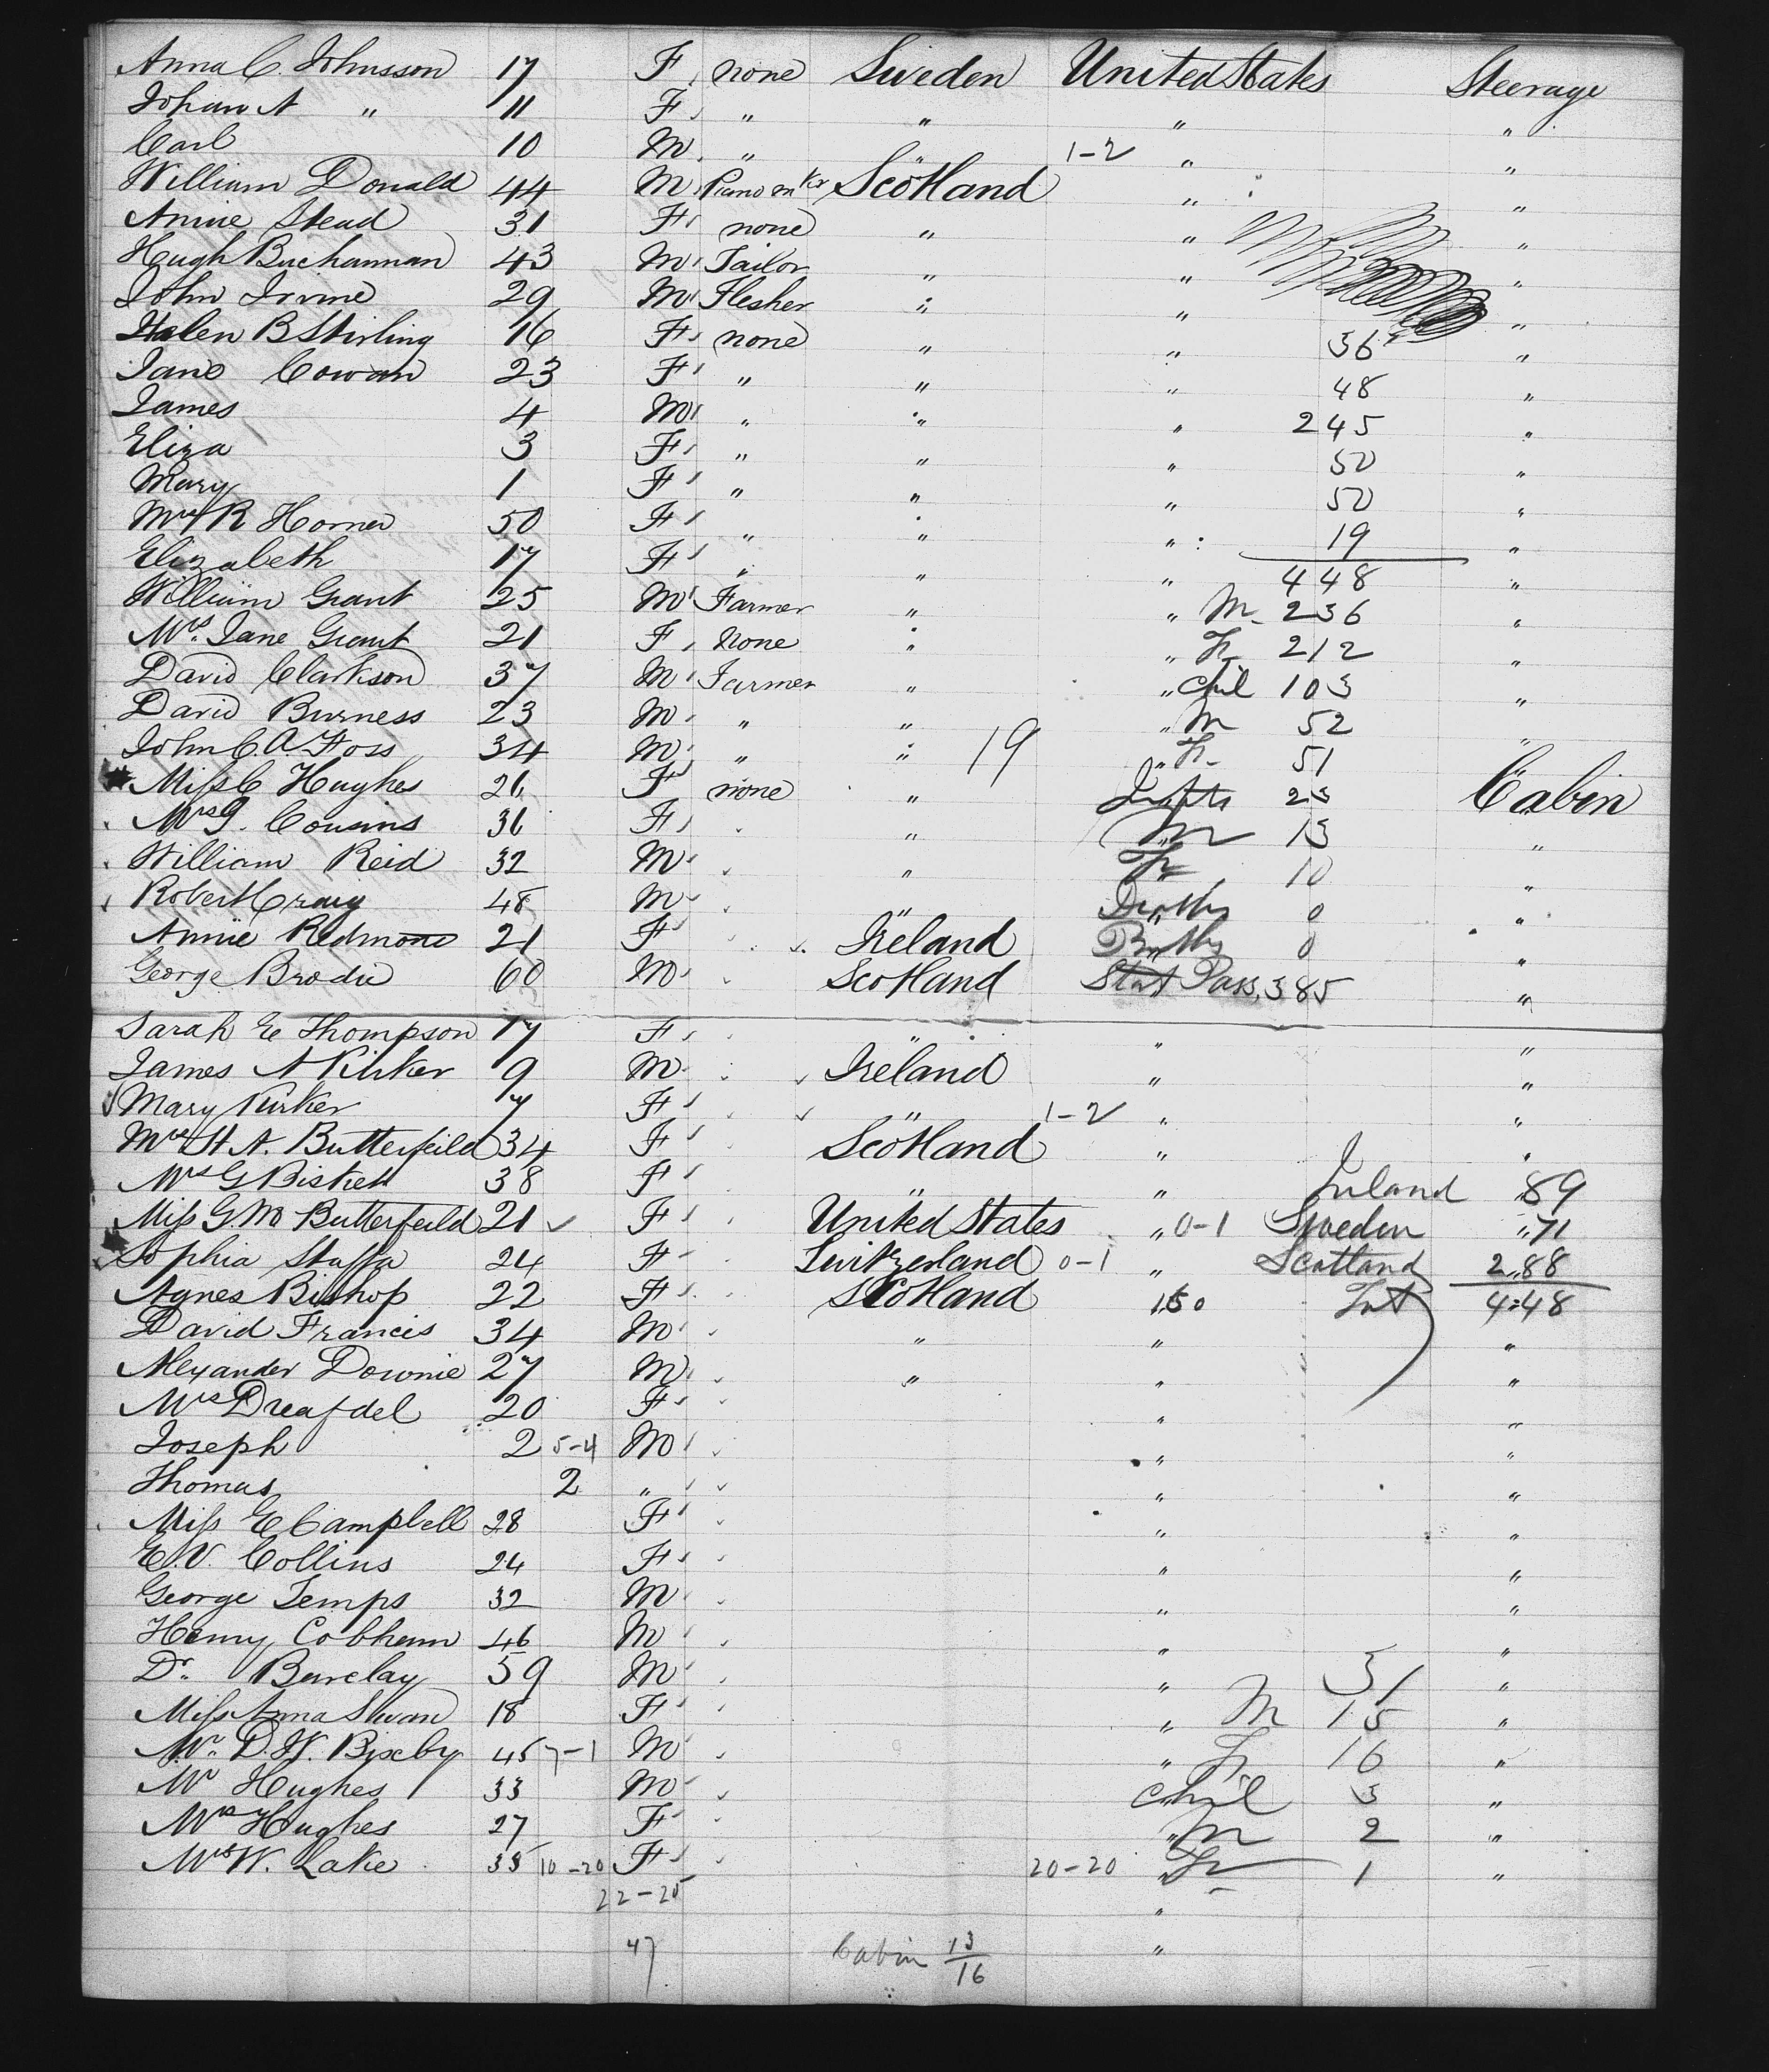 Anna C. Johnsson 17 F none Sweden United States Steerage
Johan A " 11 F " " " "
Carl 10 M " " 1-2 " "
William Donald 44 M Piano mkr Scotland " "
Annie Stead 31 F none " " "
Hugh Buchannan 43 M Tailor " " "
John Irvine 29 M Flesher " " "
Helen B Stirling 16 F none " " 36 "
Jane Cowan 23 F " " " 48 "
James 4 M " " " 245 "
Eliza 3 F " " " 50 "
Mary 1 F " " " 50 "
Mrs R Horner 50 F " " " 19 "
Elizabeth 17 F " " " 448 "
William Grant 25 M Farmer " " M 236 "
Mrs. Jane Grant 21 F none " " F 212 "
David Clarkson 37 M Farmer " " Chil 103 "
David Burness 23 M " " " M 52 "
John C. A. Foss 34 M " " 19 " F 51
Miss C Hughes 26 F none " Infts 23 Cabin
Mrs G. Cousins 36 F " M 13 "
William Reid 32 M " F 10 "
Robert Craig 48 M " Deaths 0 "
Annie Redmond 21 F Ireland Births 0 "
George Brodie 60 M Scotland Stat Pass. 385 "
Sarah E Thompson 17 F " " "
James A Kirker 9 M Ireland " "
Mary Kirker 7 F " 1-2 " "
Mrs H. A. Butterfeild 34 F Scotland " "
Mrs G Bisket 38 F " " Ireland 89
Miss G M Butterfeild 21 F United States " 0-1 Sweden 71
Sophia Staffa 24 F Switzerland 0-1 " Scotland 288
Agnes Bishop 22 F Scotland 150 Tot 448
David Francis 34 M " " "
Alexander Downie 27 M " " "
Mrs 20 F " "
Joseph 2 5-4 M " "
Thomas 2 " " "
Miss E Campbell 28 F " "
E. V. Collins 24 F " "
George Temps 32 M " "
Henry Cobham 46 M " "
Dr. Barclay 59 M " 31 "
Miss Anna Swan 18 F " M 15 "
Mr. D. W. Bixby 45 7-1 M " F 16 "
Mr Hughes 33 M Chil 3 "
Mrs Hughes 27 F " M 2 "
Mrs W. Lake 35 10-20 F 20-20 " F 1 "
22-25 "
47 Cabin 13/16 "